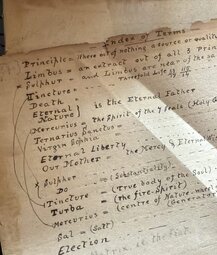 Index of Terms
Principle = Where out of nothing a source or quality
Limbus = an extract out of all 3 Prin
Sulphur - and Limbus are near of the sa
Tincture - Threefold Life
Death
Eternal Nature } is the Eternal Father
Mercurius = The Spirit of the 7 Seals (Holy
Ternarius Sanctus
Virgin Sophia
Eternal Liberty
Our Mother = The Mercy & Eternal
x Sulphur
Do = (Substantiality)
Tincture = (True body of the Soul)
Turba = (the fire-Spirit)
Mercurius = (centre of Nature
Sal = (Salt) (Generator
Election
Matrix is the first